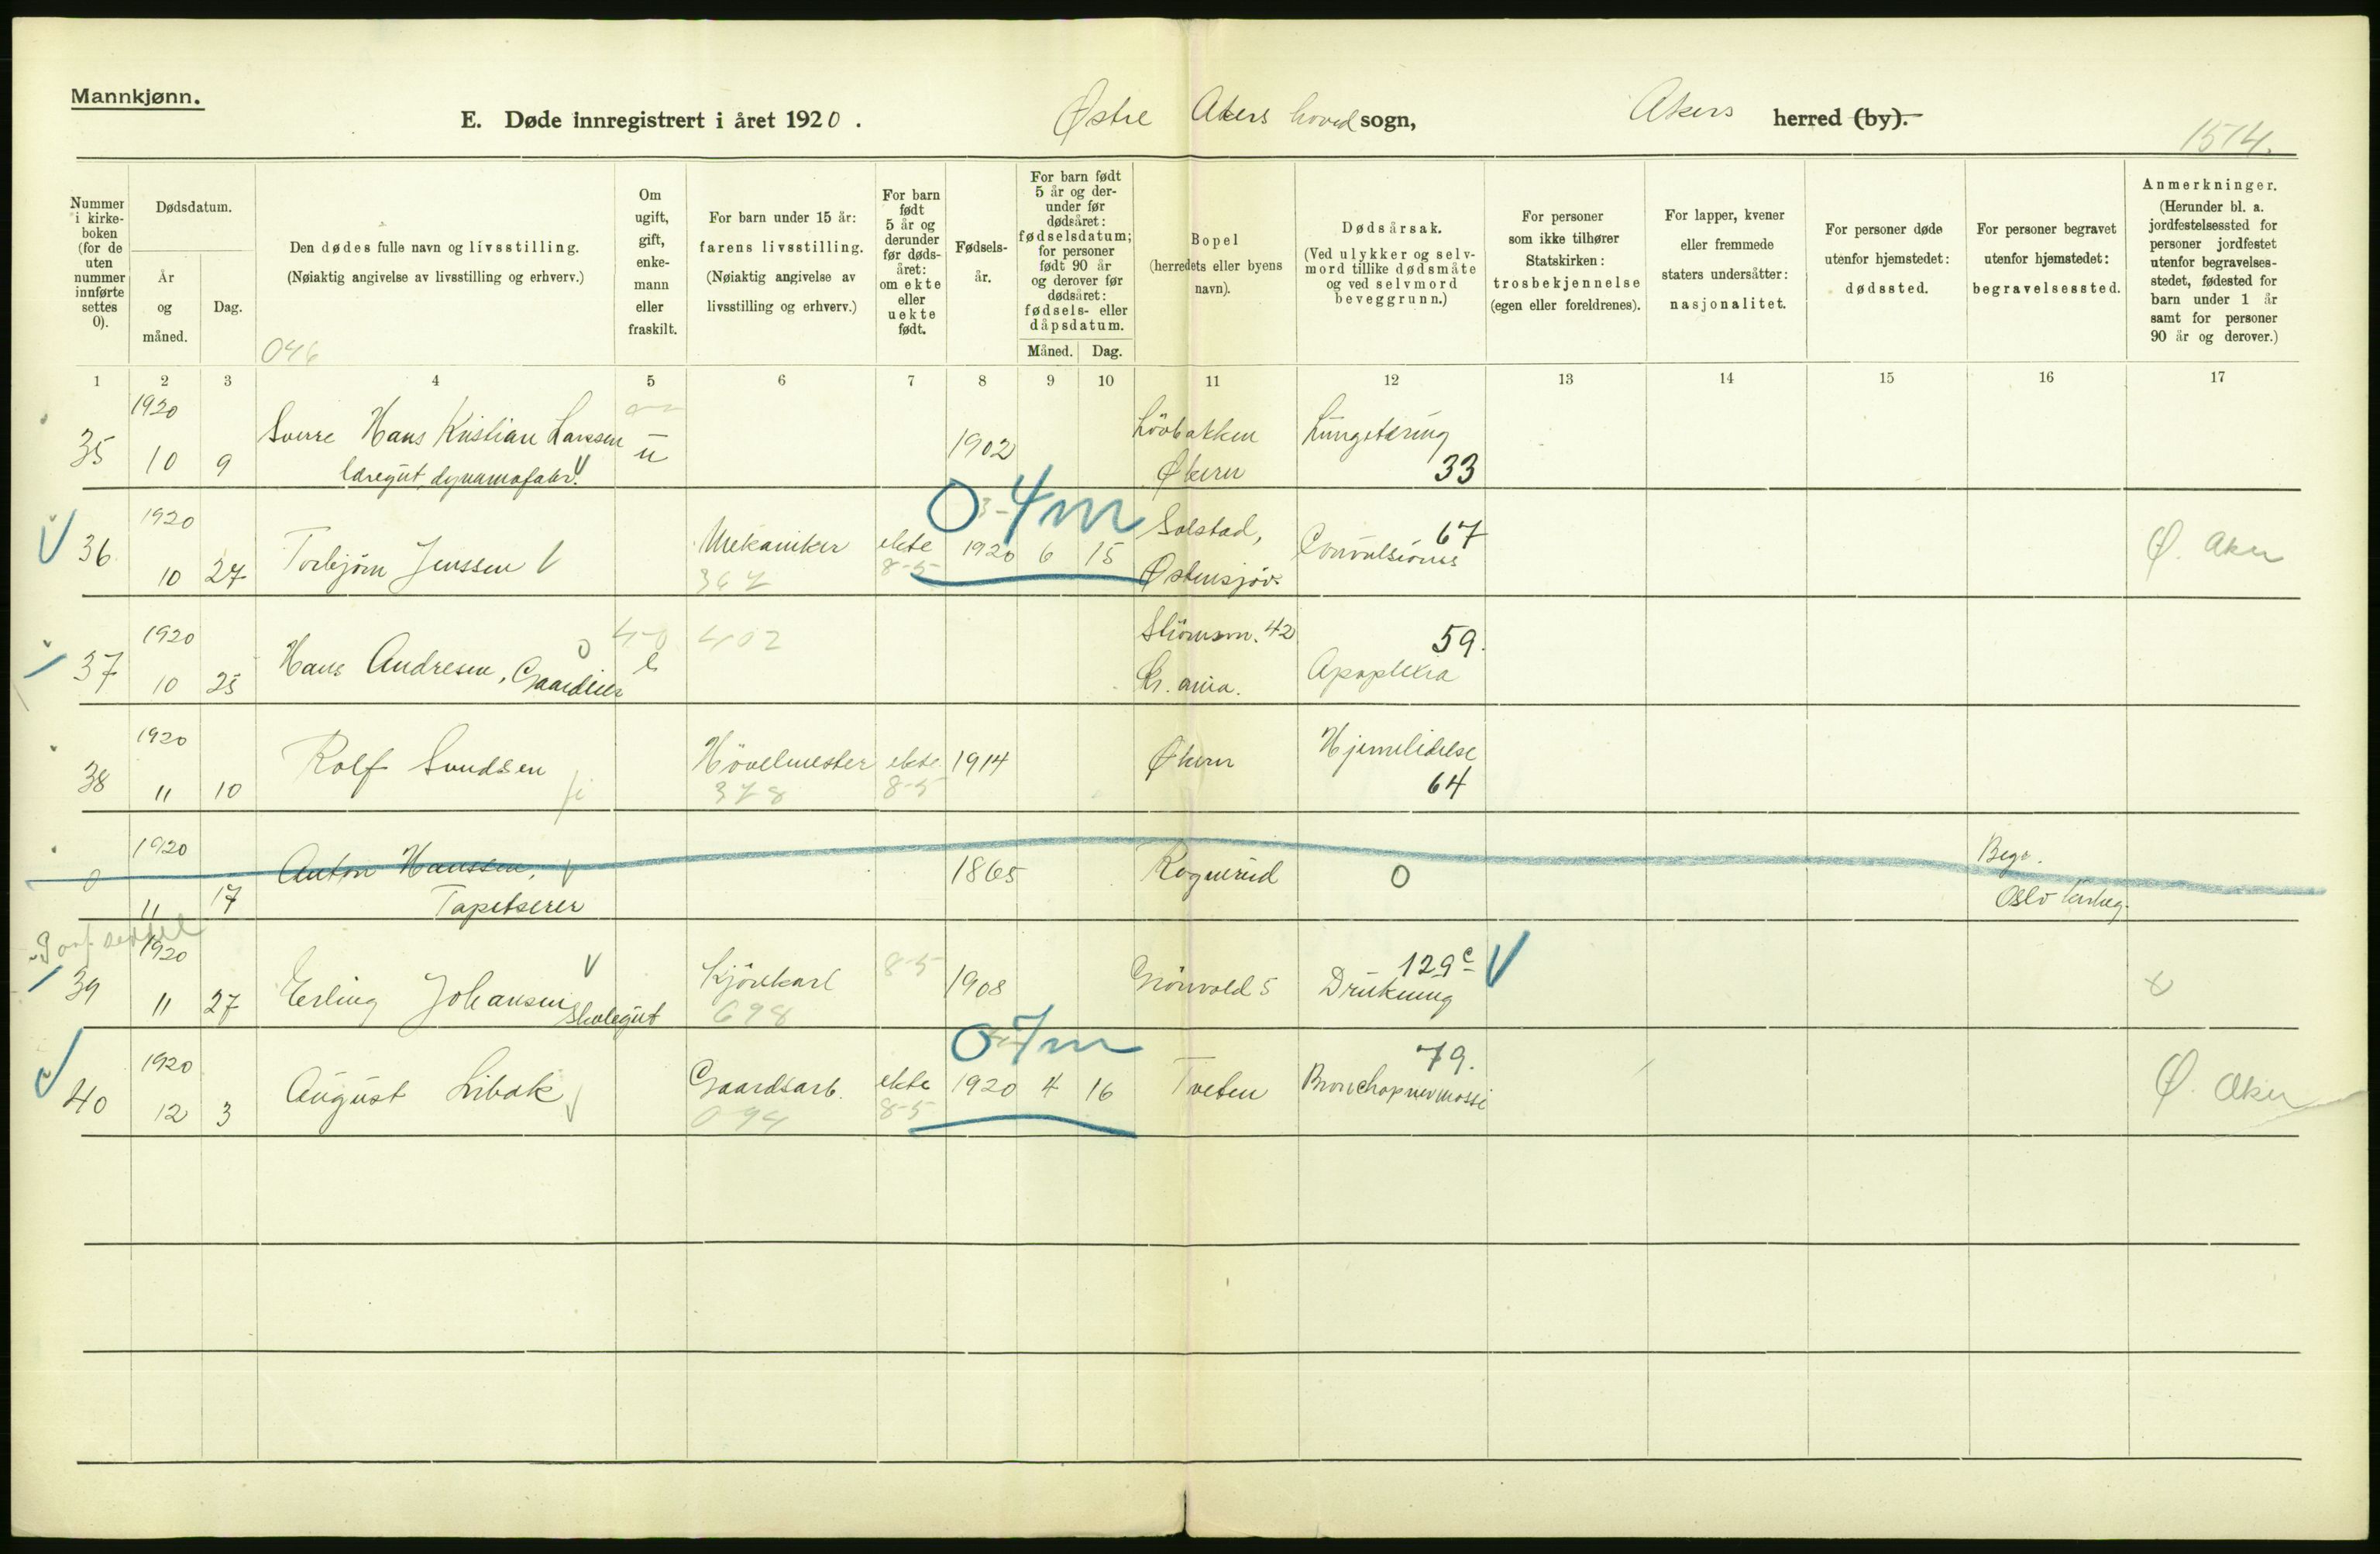 Mannkjønn.
E. Døde innregistrert i året 1920. Østre Akers hoved sogn, Akers herred (by).
1514.
Nummer i kirke-boken (for de uten nummer innførte settes 0).
Dødsdatum.
År og måned.
Dag.
Den dødes fulle navn og livsstilling.
(Nøiaktig angivelse av livsstilling og erhverv.)
046
Om ugift, gift, enke-mann eller fraskilt.
For barn under 15 år:
farens livsstilling.
(Nøiaktig angivelse av livsstilling og erhverv.)
For barn født 5 år og derunder før døds-året: om ekte eller uekte født.
Fødsels-år.
For barn født 5 år og der-under før dødsåret: fødselsdatum; for personer født 90 år og derover før dødsåret: fødsels- eller dåpsdatum.
Måned. Dag.
Bopel
(herredets eller byens navn).
Dødsårsak.
(Ved ulykker og selv-mord tillike dødsmåte og ved selvmord beveggrunn.)
For personer som ikke tilhører Statskirken: trosbekjennelse (egen eller foreldrenes).
For lapper, kvener eller fremmede staters undersåtter: nasjonalitet.
For personer døde utenfor hjemstedet: dødssted.
For personer begravet utenfor hjemstedet: begravelsessted.
Anmerkninger.
(Herunder bl. a. jordfestelsessted for personer jordfestet utenfor begravelses-stedet, fødested for barn under 1 år samt for personer 90 år og derover.)
1 2 3 4 5 6 7 8 9 10 11 12 13 14 15 16 17
35 1920 10 9 Sverre Hans Kristian Larssen u 1902 Lövbakken Lungetæring
læregut dynamofabr. Økern 33
0 4 m
36 1920 10 27 Torbjörn Jenssen Mekaniker ekte 1920 6 15 Solstad, 67 Convulsiones Ø. Aker
367 8-5 Østensjöv.
37 1920 10 25 Hans Andresen, Gaardeier e 402 Strömsv. 42 59.
Kr.ania. Apoplexia
38 1920 11 10 Rolf Svendsen Hövelmester ekte 1914 Økern Hjernelidelse
378 8-5 64
0 1920 11 17 Anton Hanssen, 1865 Rognerud 0 Begr.
Tapetserer Oslo
39 1920 11 27 Erling Johansen skolegut Kjörekarl 8-5 1908 Grönvold 5 129c Drukning
698
0 7 m
40 1920 12 3 August Libak Gaardsarb. ekte 1920 4 16 Tveten 79. Ø. Aker
094 8-5